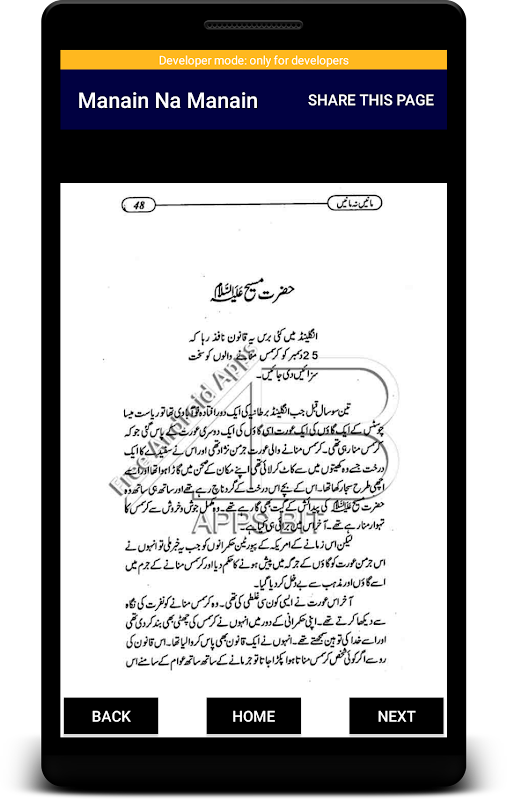 Developer mode: only for developers
Manain Na Manain
SHARE THIS PAGE
48
مانیں نہ مانیں
حضرت مسیح علیہ السلام
انگلینڈ میں کئی برس یہ قانون نافذ رہا کہ
25 دسمبر کو کرسمس منانے والوں کو سخت
سزائیں دی جائیں۔
تین سو سال قبل جب انگلینڈ برطانیہ کی ایک دور افتادہ نو آبادی تھا تو ریاست میسا
چوسٹس کے ایک گاؤں کی ایک عورت اسی گاؤں کی ایک دوسری عورت کے پاس گئی جو کہ
کرسمس منا رہی تھی۔ کرسمس منانے والی عورت جرمن نژاد تھی اور اس نے سفیدے کا ایک
درخت جسے وہ کھیتوں میں سے کاٹ کر لائی تھی اپنے مکان کے صحن میں گاڑا ہوا تھا اور اسے
اچھی طرح سجا رکھا تھا۔ اس کے بچے اس درخت کے گرد ناچ رہے تھے اور ساتھ ہی ساتھ وہ
حضرت مسیح علیہ السلام کی پیدائش کے گیت بھی گا رہے تھے۔ وہ مکمل جوش و خروش سے کرسمس کا
تہوار منا رہے تھے۔ آخر اس میں حیرانی ہی کیا ہے۔
لیکن اس زمانے کے امریکہ کے پیورٹین حکمرانوں کو جب یہ خبر ملی تو انہوں نے
اس جرمن عورت کو گاؤں کے جرگہ میں پیش ہونے کا حکم دیا اور کرسمس منانے کے جرم میں
اسے گاؤں اور مذہب سے بے دخل کر دیا گیا۔
آخر اس عورت نے ایسی کون سی غلطی کی تھی۔ وہ کرسمس منانے کو نفرت کی نگاہ
سے دیکھا کرتے تھے۔ اپنی حکمرانی کے دور میں انہوں نے کرسمس کی چھٹی بھی بند کر دی تھی
اور اسے خدا کی توہین سمجھتے تھے۔ انہوں نے ایک قانون بھی پاس کروا لیا تھا۔ اس قانون کی
رو سے اگر کوئی شخص کرسمس مناتا ہوا پکڑا جاتا تو جرمانے کے ساتھ ساتھ عوام کے سامنے اس
Free Android Apps
APPS BIT
BACK
HOME
NEXT